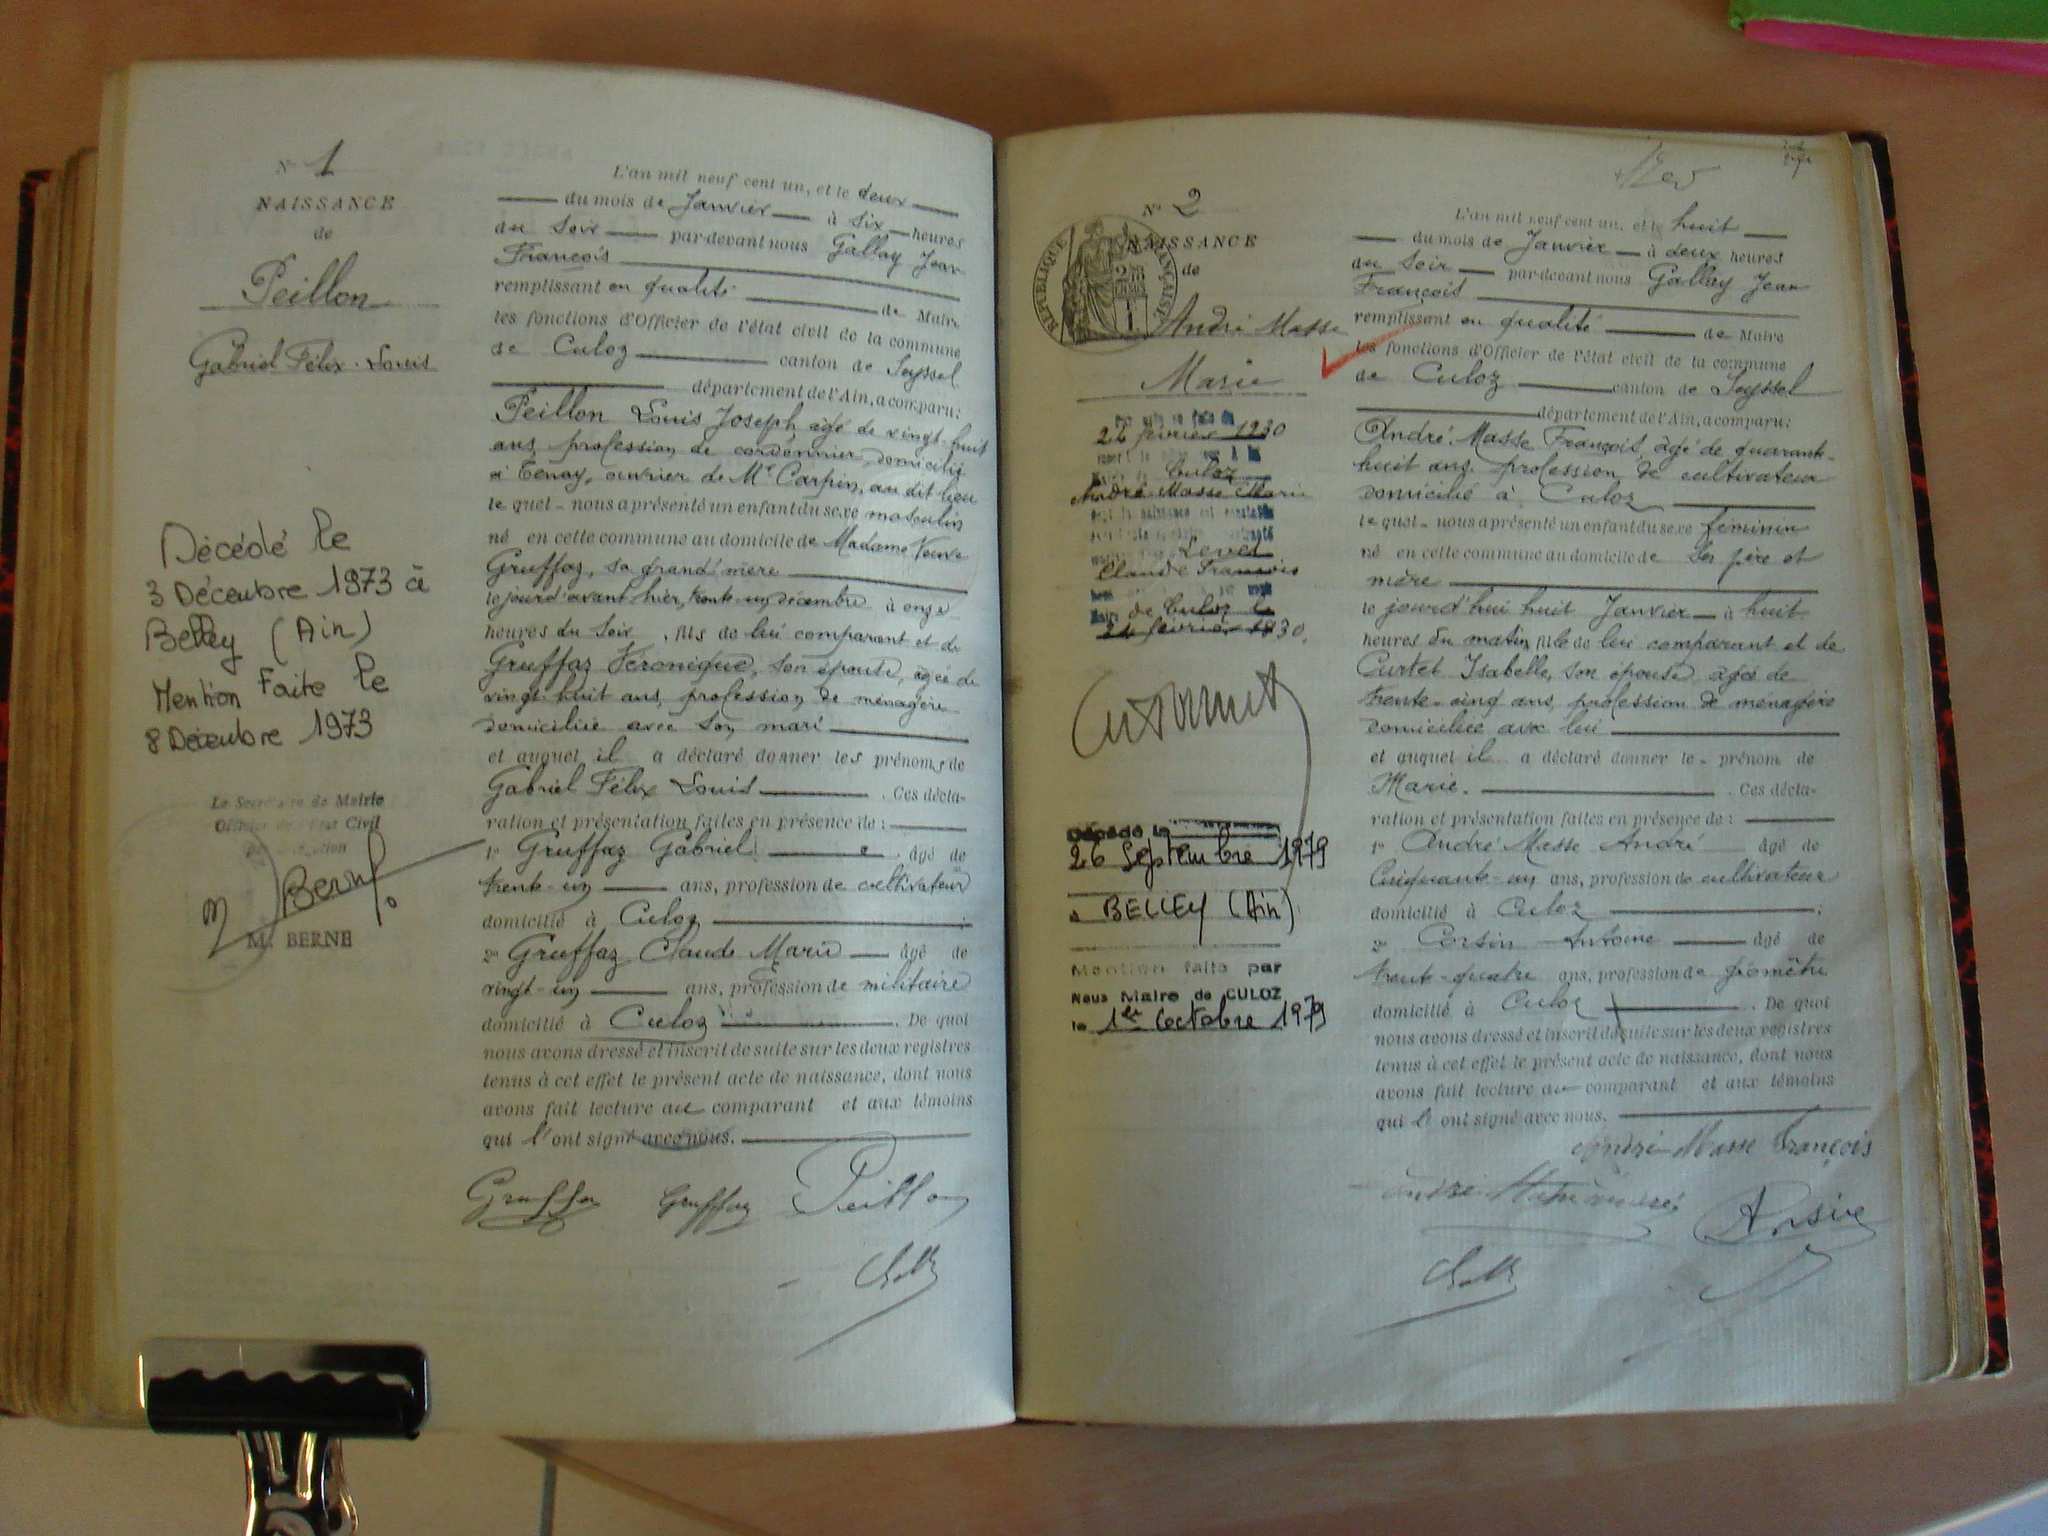 N° 1
NAISSANCE
de
Peillon
Gabriel Félix-Louis
Décédé le
3 Décembre 1973 à
Belley (Ain)
Mention Faite le
8 Décembre 1973
Le Secrétaire de Mairie
Officier de l'Etat Civil
M. Berne
M. BERNE
L'an mil neuf cent un, et le deux
du mois de Janvier à six heures
du Soir par-devant nous Gallay Jean
François
remplissant en qualité de Maire
les fonctions d'Officier de l'état civil de la commune
de Culoz canton de Seyssel
département de l'Ain, a comparu:
Peillon Louis Joseph âgé de vingt-huit
ans, profession de cordonnier, domicilié
à Tenay, ouvrier de Mr Carpin, au dit lieu
le quel nous a présenté un enfant du sexe masculin
né en cette commune au domicile de Madame Veuve
Gruffaz, sa grand'mère
le jourd'avant hier, trente-un décembre à onze
heures du Soir, fils de lui comparant et de
Gruffaz Véronique, son épouse, âgée de
vingt-huit ans, profession de ménagère
domiciliée avec son mari
et auquel il a déclaré donner les prénoms de
Gabriel Félix Louis. Ces décla-
ration et présentation faites en présence de:
1° Gruffaz Gabriel âgé de
trente-un ans, profession de cultivateur
domicilié à Culoz;
2° Gruffaz Claude Marie âgé de
vingt-un ans, profession de militaire
domicilié à Culoz. De quoi
nous avons dressé et inscrit de suite sur les deux registres
tenus à cet effet le présent acte de naissance, dont nous
avons fait lecture au comparant et aux témoins
qui l'ont signé avec nous.
Gruffaz Gruffaz Peillon
N° 2
NAISSANCE
de
RÉPUBLIQUE FRANÇAISE
André Masse
Marie
24 février 1930
Culoz
André Masse Marie
Levet
Claude François
Maire de Culoz le
24 février 1930.
Décédé le
26 Septembre 1979
à BELLEY (Ain)
Mention faite par
Nous Maire de CULOZ
le 1er Octobre 1979
L'an mil neuf cent un, et le huit
du mois de Janvier à deux heures
du Soir par-devant nous Gallay Jean
François
remplissant en qualité de Maire
les fonctions d'Officier de l'état civil de la commune
de Culoz canton de Seyssel
département de l'Ain, a comparu:
André-Masse François, âgé de quarante-
huit ans, profession de cultivateur
domicilié à Culoz
le quel nous a présenté un enfant du sexe féminin
né en cette commune au domicile de ses père et
mère
le jourd'hui huit Janvier à huit
heures du matin, fille de lui comparant et de
Curtet Isabelle, son épouse, âgée de
trente-cinq ans, profession de ménagère
domiciliée avec lui
et auquel il a déclaré donner le prénom de
Marie. Ces décla-
ration et présentation faites en présence de:
1° André Masse André âgé de
Cinquante-un ans, profession de cultivateur
domicilié à Culoz;
2° Corsin Antoine âgé de
trente-quatre ans, profession de géomètre
domicilié à Culoz. De quoi
nous avons dressé et inscrit de suite sur les deux registres
tenus à cet effet le présent acte de naissance, dont nous
avons fait lecture au comparant et aux témoins
qui l'ont signé avec nous.
André-Masse François